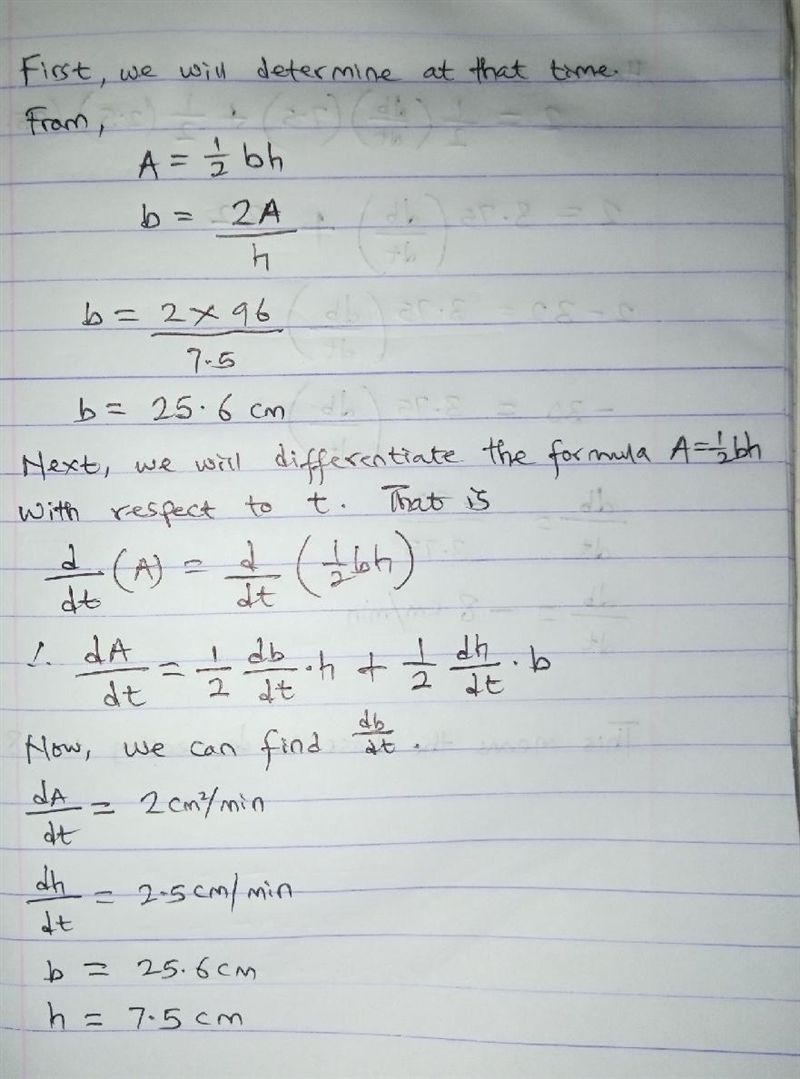 First, we will determine at that time.
From,
A = 1/2 bh
b = 2A/h
b = 2 × 96/7.5
b = 25.6 cm
Next, we will differentiate the formula A=1/2bh
with respect to t. That is
d/dt (A) = d/dt (1/2bh)
∴ dA/dt = 1/2 db/dt · h + 1/2 dh/dt · b
Now, we can find db/dt.
dA/dt = 2cm²/min
dh/dt = 2.5cm/min
b = 25.6cm
h = 7.5cm